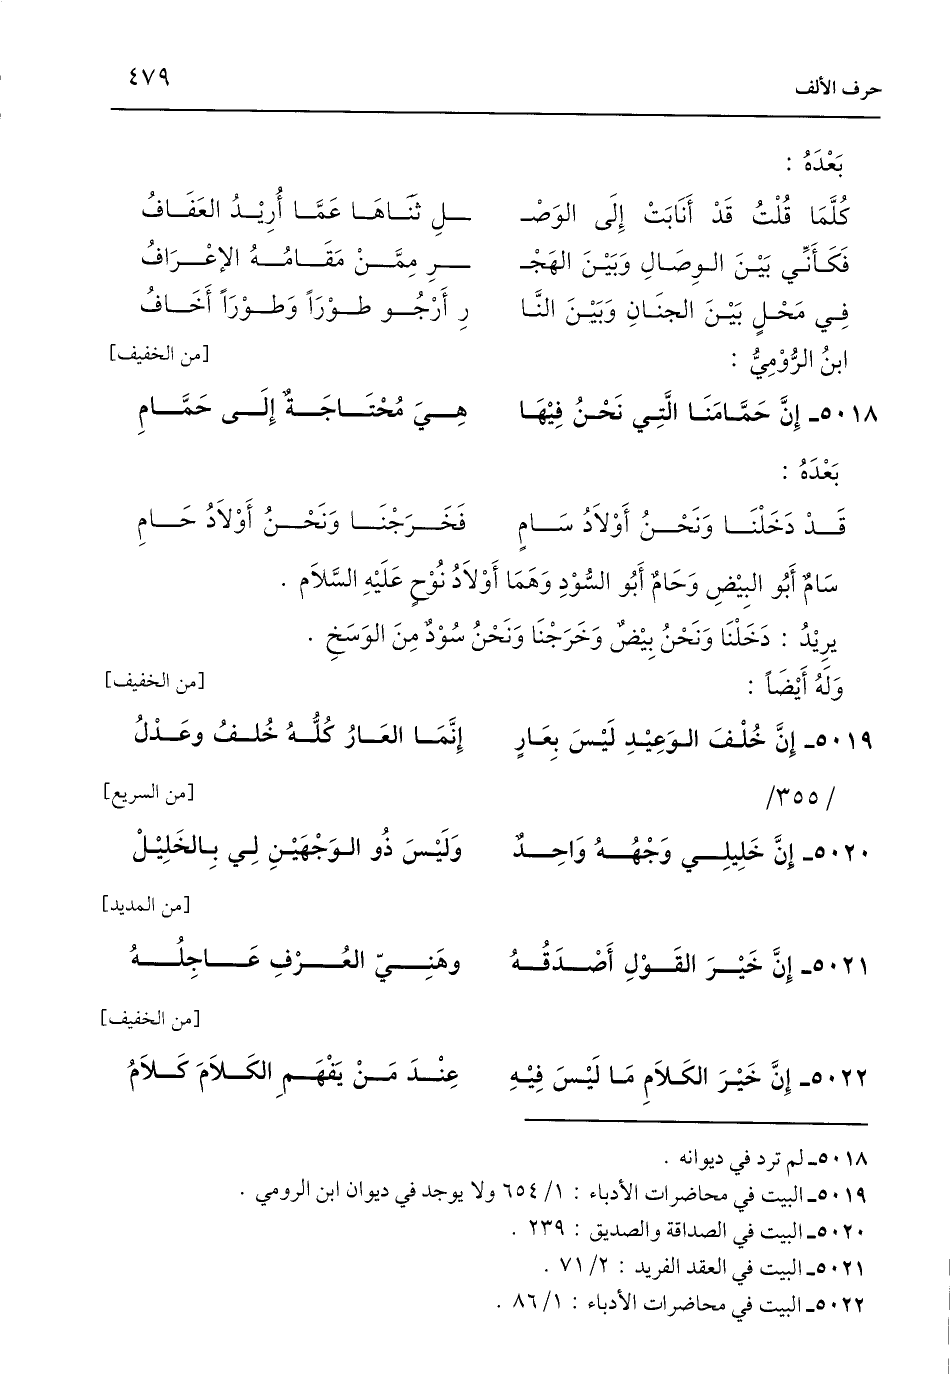 حرف الألف ٤٧٩
بَعْدَهُ :
كُلَّمَا قُلْتُ قَدْ أَنَابَتْ إِلَى الوَصْـ ـلِ ثَنَاهَا عَمَّا أُرِيْدُ العَفَافُ
فَكَأَنِّي بَيْنَ الوِصَالِ وَبَيْنَ الهَجْـ ـرِ مِمَّنْ مَقَامُهُ الإِعْرَافُ
فِي مَحْلٍ بَيْنَ الجنَانِ وَبَيْنَ النَّا رِ أَرْجُو طَوْرَاً وَطَوْرَاً أَخَافُ
ابنُ الرُّوْمِيُّ : [من الخفيف]
٥٠١٨ـ إِنَّ حَمَّامَنَا الَّتِي نَحْنُ فِيْهَا هِيَ مُحْتَاجَةٌ إِلَى حَمَّامِ
بَعْدَهُ :
قَدْ دَخَلْنَا وَنَحْنُ أَوْلاَدُ سَامٍ فَخَرَجْنَا وَنَحْنُ أَوْلاَدُ حَامِ
سَامٌ أَبُو البِيْضِ وَحَامٌ أَبُو السُّوْدِ وَهَمَا أَوْلاَدُ نُوْحٍ عَلَيْهِ السَّلاَم .
يرِيْدُ : دَخَلْنَا وَنَحْنُ بِيْضٌ وَخَرَجْنَا وَنَحْنُ سُوْدٌ مِنَ الوَسَخِ .
وَلَهُ أَيْضَاً : [من الخفيف]
٥٠١٩ـ إِنَّ خُلْفَ الوَعِيْدِ لَيْسَ بِعَارٍ إِنَّمَا العَارُ كُلُّهُ خُلفُ وعَدْلُ
/ ٣٥٥/ [من السريع]
٥٠٢٠ـ إِنَّ خَلِيلِي وَجْهُهُ وَاحِدٌ وَلَيْسَ ذُو الوَجْهَيْنِ لِي بِالخَلِيْلْ
[من المديد]
٥٠٢١ـ إِنَّ خَيْرَ القَوْلِ أَصْدَقُهُ وهَنِيّ العُرْفِ عَاجِلُهُ
[من الخفيف]
٥٠٢٢ـ إِنَّ خَيْرَ الكَلاَمِ مَا لَيْسَ فِيْهِ عِنْدَ مَنْ يَفْهَمِ الكَلاَمَ كَلاَمُ
٥٠١٨ـ لم ترد في ديوانه .
٥٠١٩ـ البيت في محاضرات الأدباء : ١/ ٦٥٤ ولا يوجد في ديوان ابن الرومي .
٥٠٢٠ـ البيت في الصداقة والصديق : ٢٣٩ .
٥٠٢١ـ البيت في العقد الفريد : ٢/ ٧١ .
٥٠٢٢ـ البيت في محاضرات الأدباء : ١/ ٨٦ .